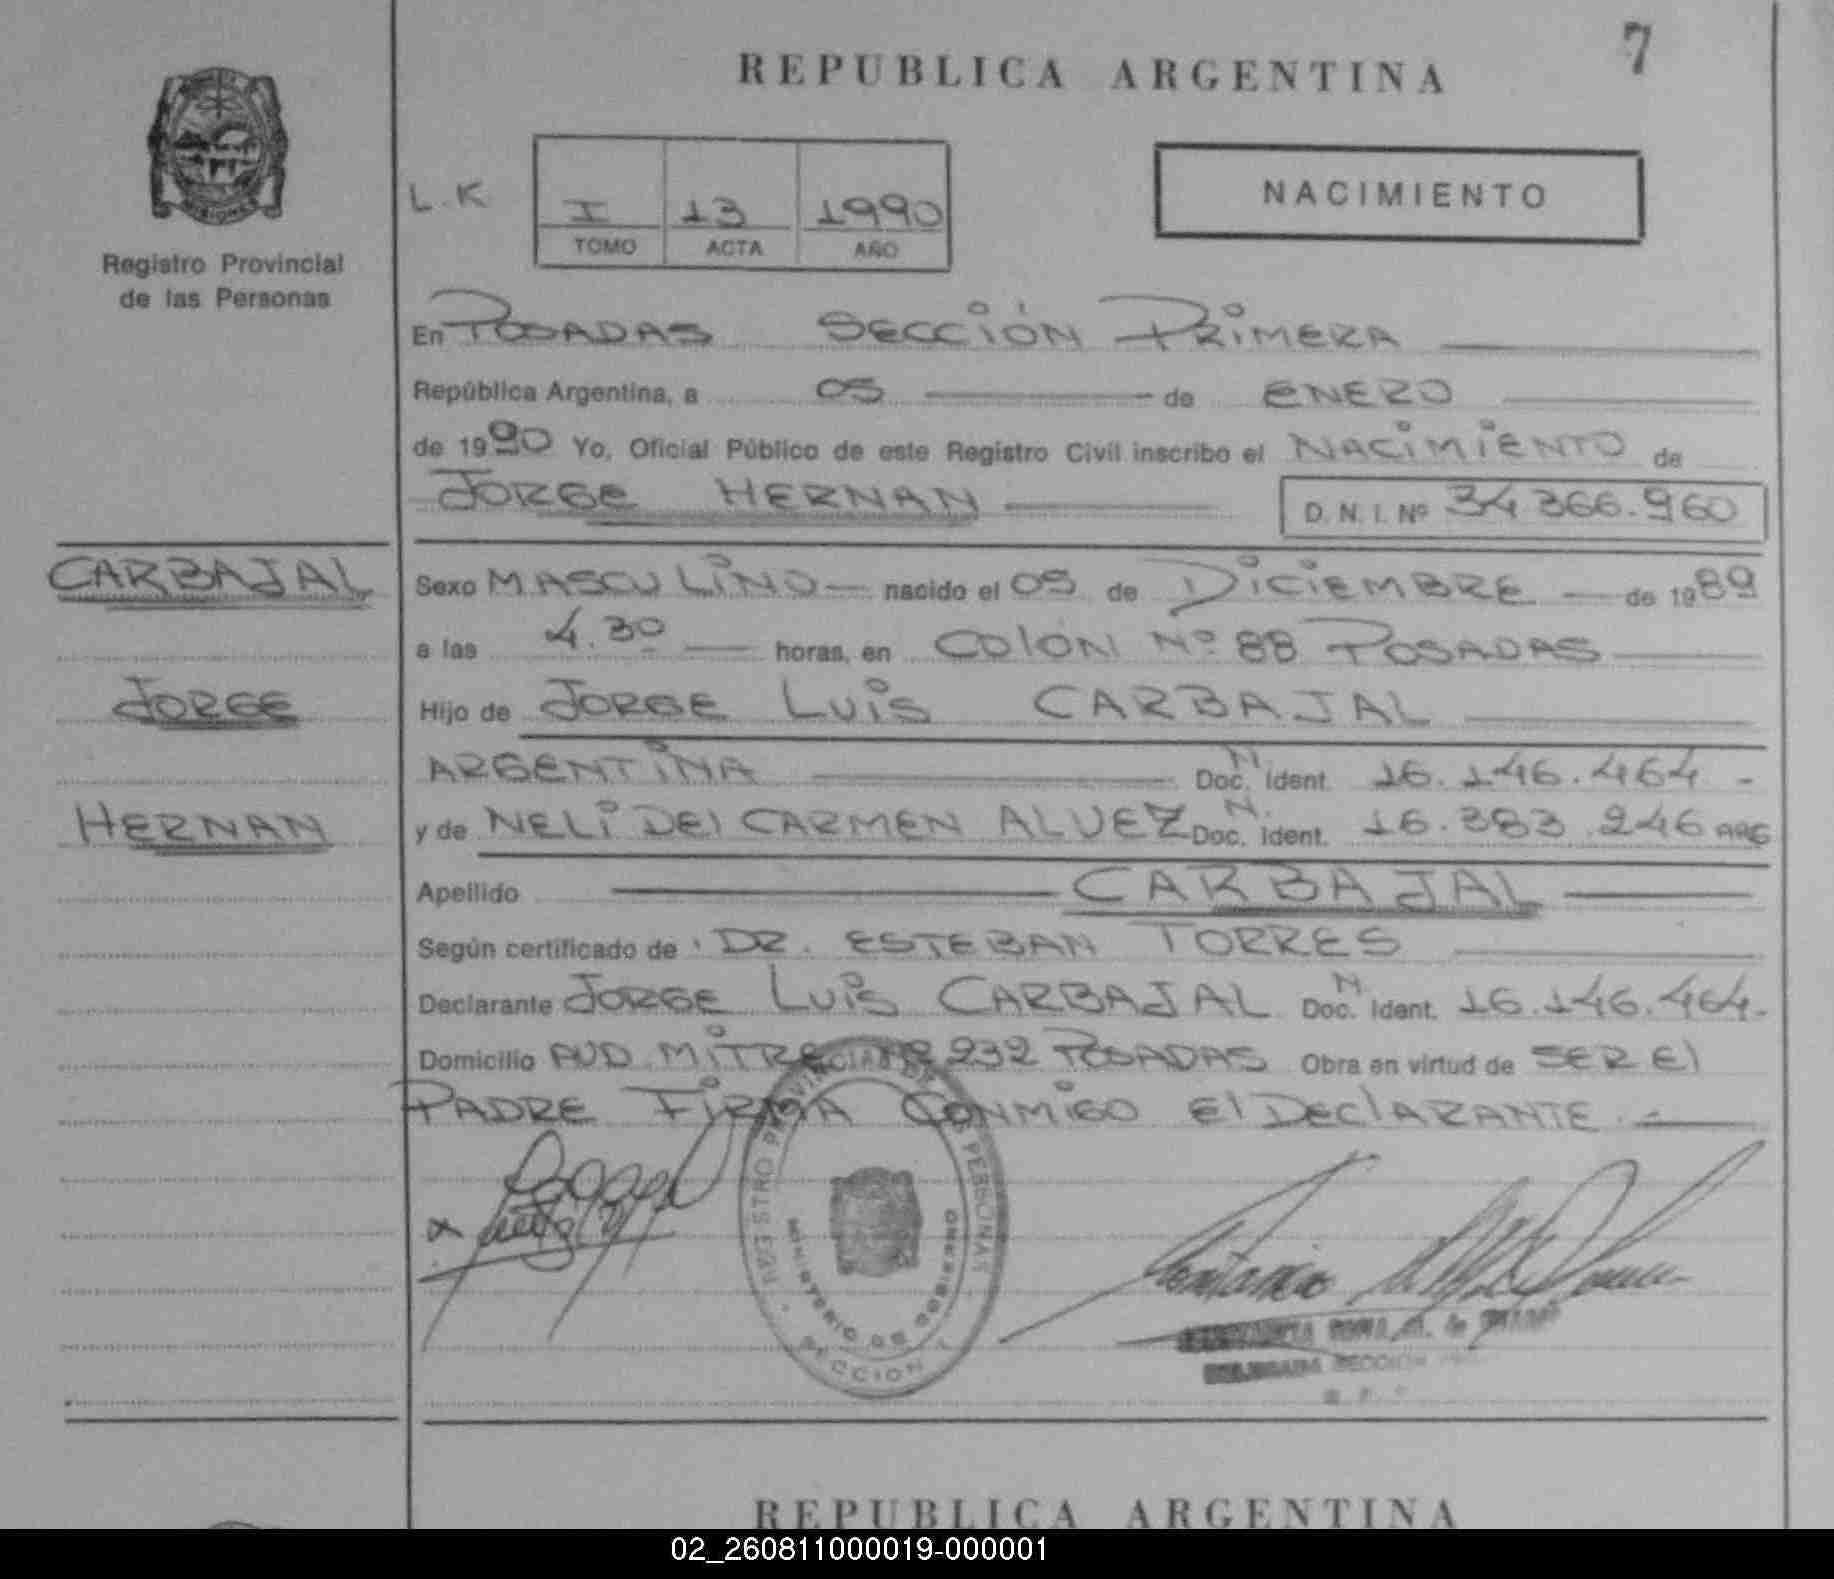 7
REPUBLICA ARGENTINA
L.K
I 13 1990
TOMO ACTA AÑO
NACIMIENTO
MISIONES
Registro Provincial
de las Personas
En POSADAS SECCIÓN PRIMERA
República Argentina, a 05 de ENERO
de 1990 Yo, Oficial Público de este Registro Civil inscribo el NACIMIENTO de
JORGE HERNAN D. N. I. Nº 34 366.960
CARBAJAL
JORGE
HERNAN
Sexo MASCULINO nacido el 05 de DICIEMBRE de 1989
a las 4.30 horas, en COLON Nº 88 POSADAS
Hijo de JORGE LUIS CARBAJAL
ARGENTINA Doc. N Ident. 16.146.464 -
y de NELI DEL CARMEN ALVEZ Doc. N. Ident. 16.383.246 ARG
Apellido CARBAJAL
Según certificado de DR. ESTEBAN TORRES
Declarante JORGE LUIS CARBAJAL Doc. N Ident. 16.146.464.-
Domicilio AVD MITRE Nº 232 POSADAS Obra en virtud de SER El
PADRE FIRMA CONMIGO El DEClARANTE.-
REGISTRO PROVINCIAL DE LAS PERSONAS
MINISTERIO DE GOBIERNO
SECCION 1
REPUBLICA ARGENTINA
02_260811000019-000001